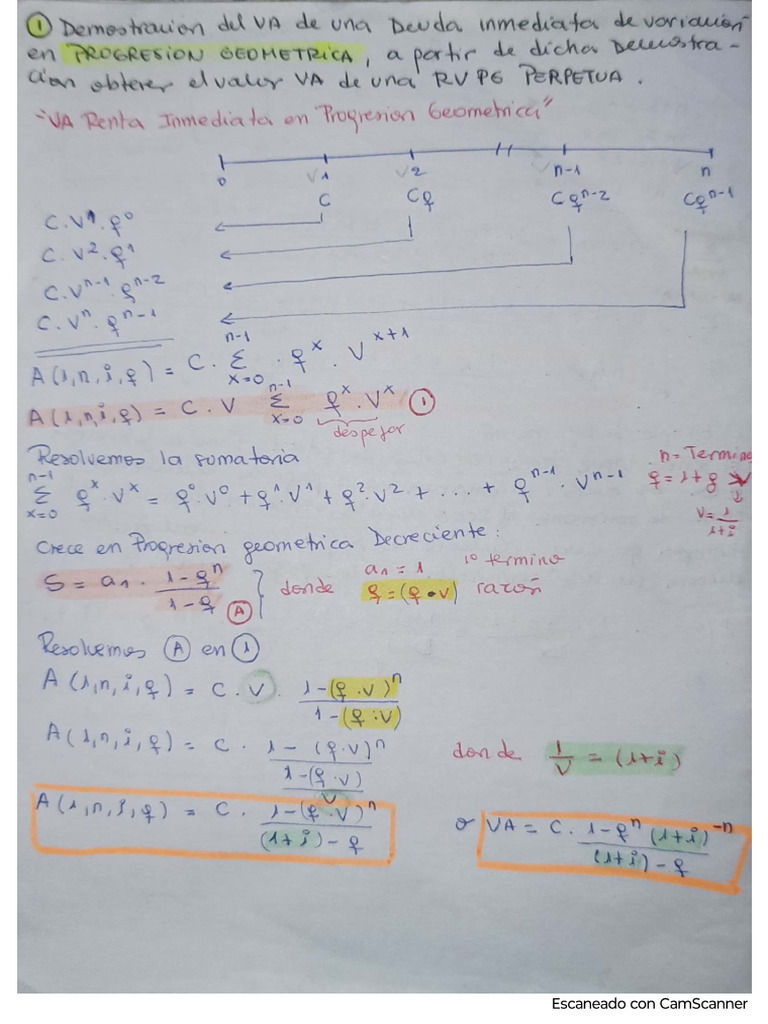 ① Demostración del VA de una Deuda inmediata de variación
en PROGRESION GEOMETRICA, a partir de dicha Demostra-
ción obtener el valor VA de una RVPG PERPETUA.
"VA Renta Inmediata en Progresion Geometrica"
0 V1 V2 n-1 n
C Cq Cq^n-2 Cq^n-1
C.V^1.q^0
C.V^2.q^1
C.V^n-1.q^n-2
C.V^n.q^n-1
A(1,n,i,q) = C. Σ_{x=0}^{n-1} . q^x . V^{x+1}
A(1,n,i,q) = C.V Σ_{x=0}^{n-1} q^x.V^x ①
despejar
Resolvemos la sumatoria
n= Termino
Σ_{x=0}^{n-1} q^x.V^x = q^0.V^0 + q^1.V^1 + q^2.V^2 + ... + q^{n-1}.V^{n-1}
q = 1+g
V = 1/(1+i)
Crece en Progresion geometrica Decreciente:
S = a1 . (1-q^n)/(1-q) Ⓐ } donde a1 = 1 1º termino
q = (q•V) razón
Resolvemos Ⓐ en ①
A(1,n,i,q) = C.V. (1-(q.V)^n)/(1-(q.V))
A(1,n,i,q) = C. (1-(q.V)^n)/((1-(q.V))/V) donde 1/V = (1+i)
A(1,n,i,q) = C. (1-(q.V)^n)/((1+i)-q) o VA = C. (1-q^n (1+i)^-n)/((1+i)-q)
Escaneado con CamScanner